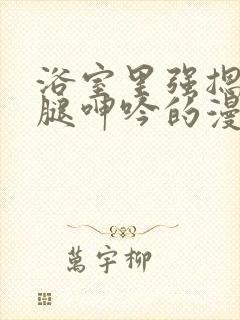 浴室里强摁
腿呻吟的漫
萬宇柳